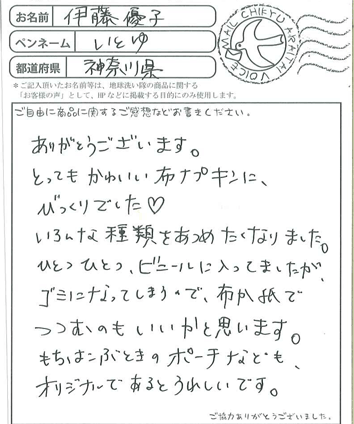 お名前 伊藤優子
ペンネーム いとゆ
都道府県 神奈川県
MAIL CHIKYU ARAITAI VOICE
＊ご記入頂いたお名前等は、地球洗い隊の商品に関する
「お客様の声」として、HPなどに掲載する目的にのみ使用します。
ご自由に商品に関するご感想などお書きください。
ありがとうございます。
とってもかわいい布ナプキンに、
びっくりでした♡
いろんな種類をあつめたくなりました。
ひとつひとつ、ビニールに入ってましたが、
ゴミになってしまうので、布か紙で
つつむのもいいかと思います。
もちはこぶときのポーチなども、
オリジナルであるとうれしいです。
ご協力ありがとうございました。